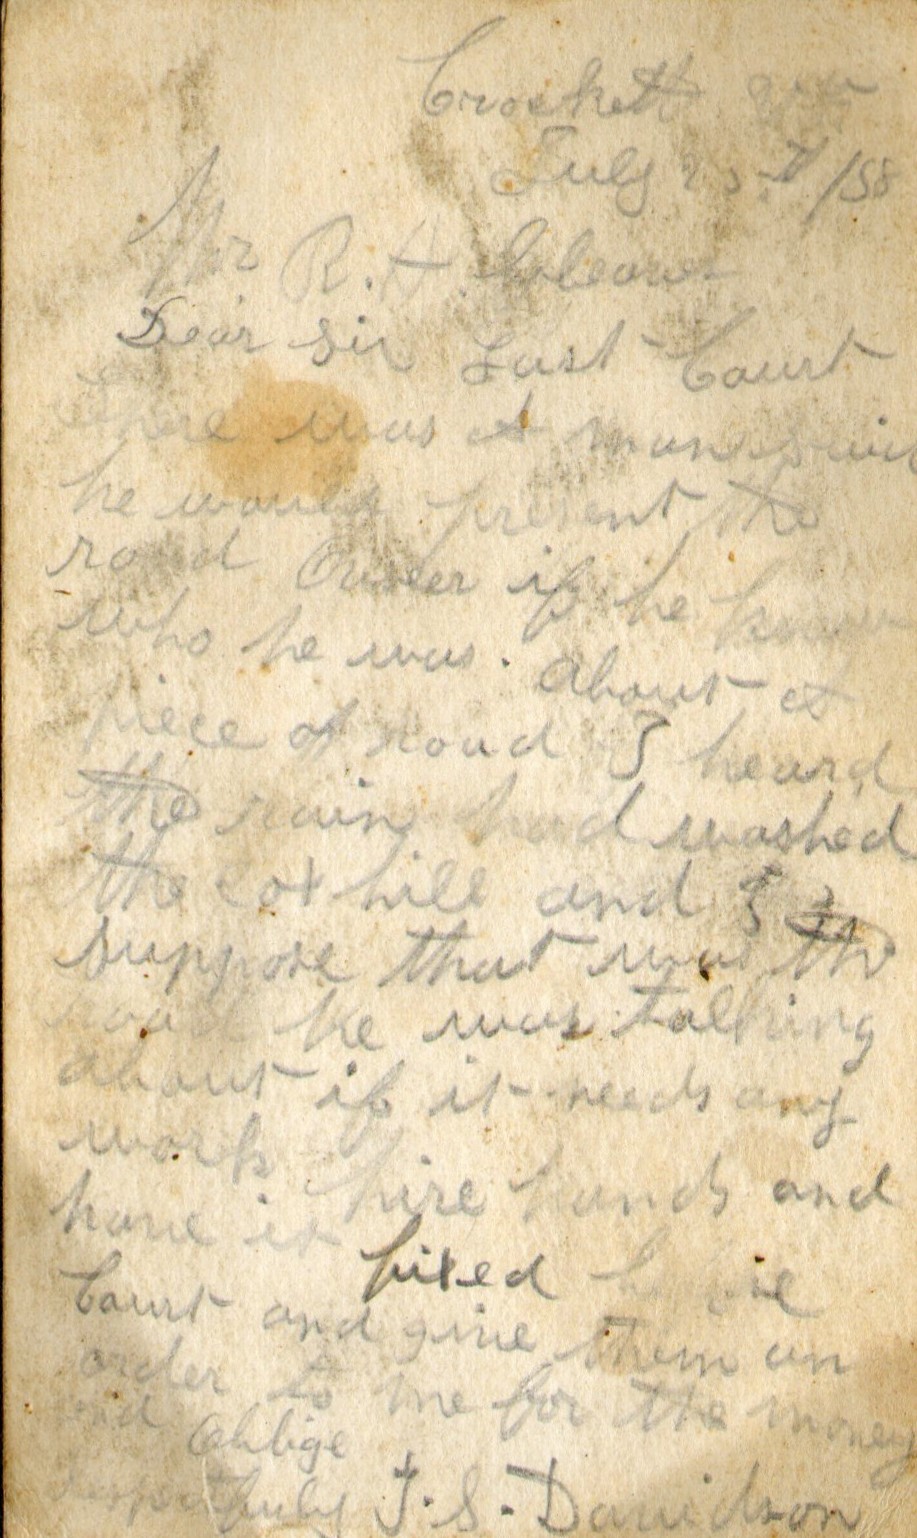 Crockett
July 25th /88
Mr R. H. Cleaver
Dear Sir Last Court
there was a man said
he would present the
road OVseer if he knew
who he was. About a
piece of road I heard
the rain had washed
the hill and I
suppose that was the
road he was talking
about if it needs any
work hire hands and
have it fixed before
Court and give them an
order to me for the money
and Oblige
Respectfully J. S. Davidson